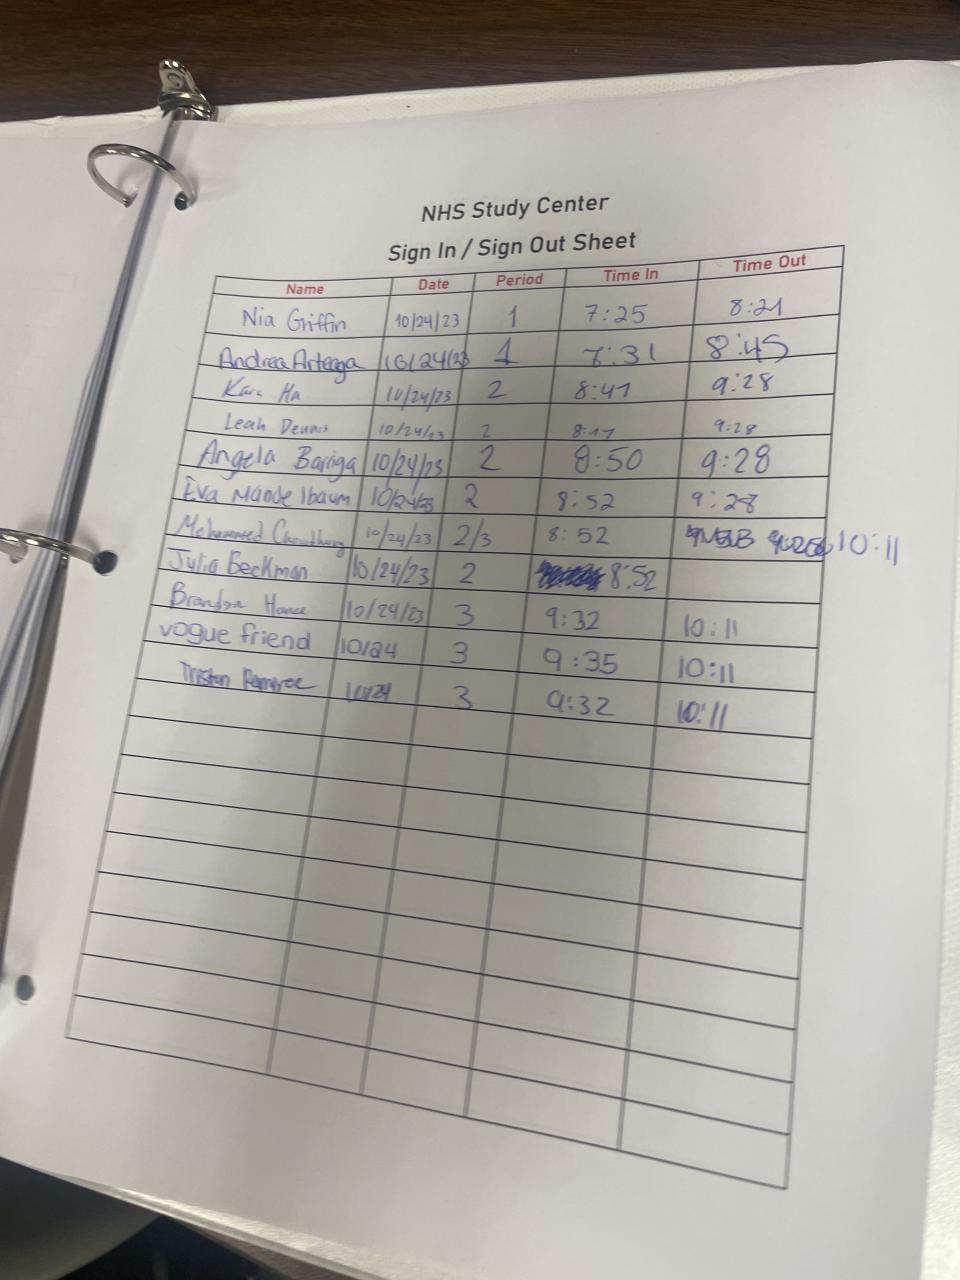 NHS Study Center
Sign In / Sign Out Sheet
Name Date Period Time In Time Out
Nia Griffin 10/24/23 1 7:25 8:21
Andrea Arteaga 10/24/23 1 7:31 8:45
Kara Ha 10/24/23 2 8:47 9:28
Leah Dennis 10/24/23 2 8:47 9:28
Angela Barriga 10/24/23 2 8:50 9:28
Eva Mandelbaum 10/24/23 2 8:52 9:28
Mohammed Chowdhury 10/24/23 2/3 8:52 10:11
Julia Beckman 10/24/23 2 8:52
Brandon 10/24/23 3 9:32 10:11
vogue friend 10/24 3 9:35 10:11
Tristan Ramirez 10/24 3 9:32 10:11